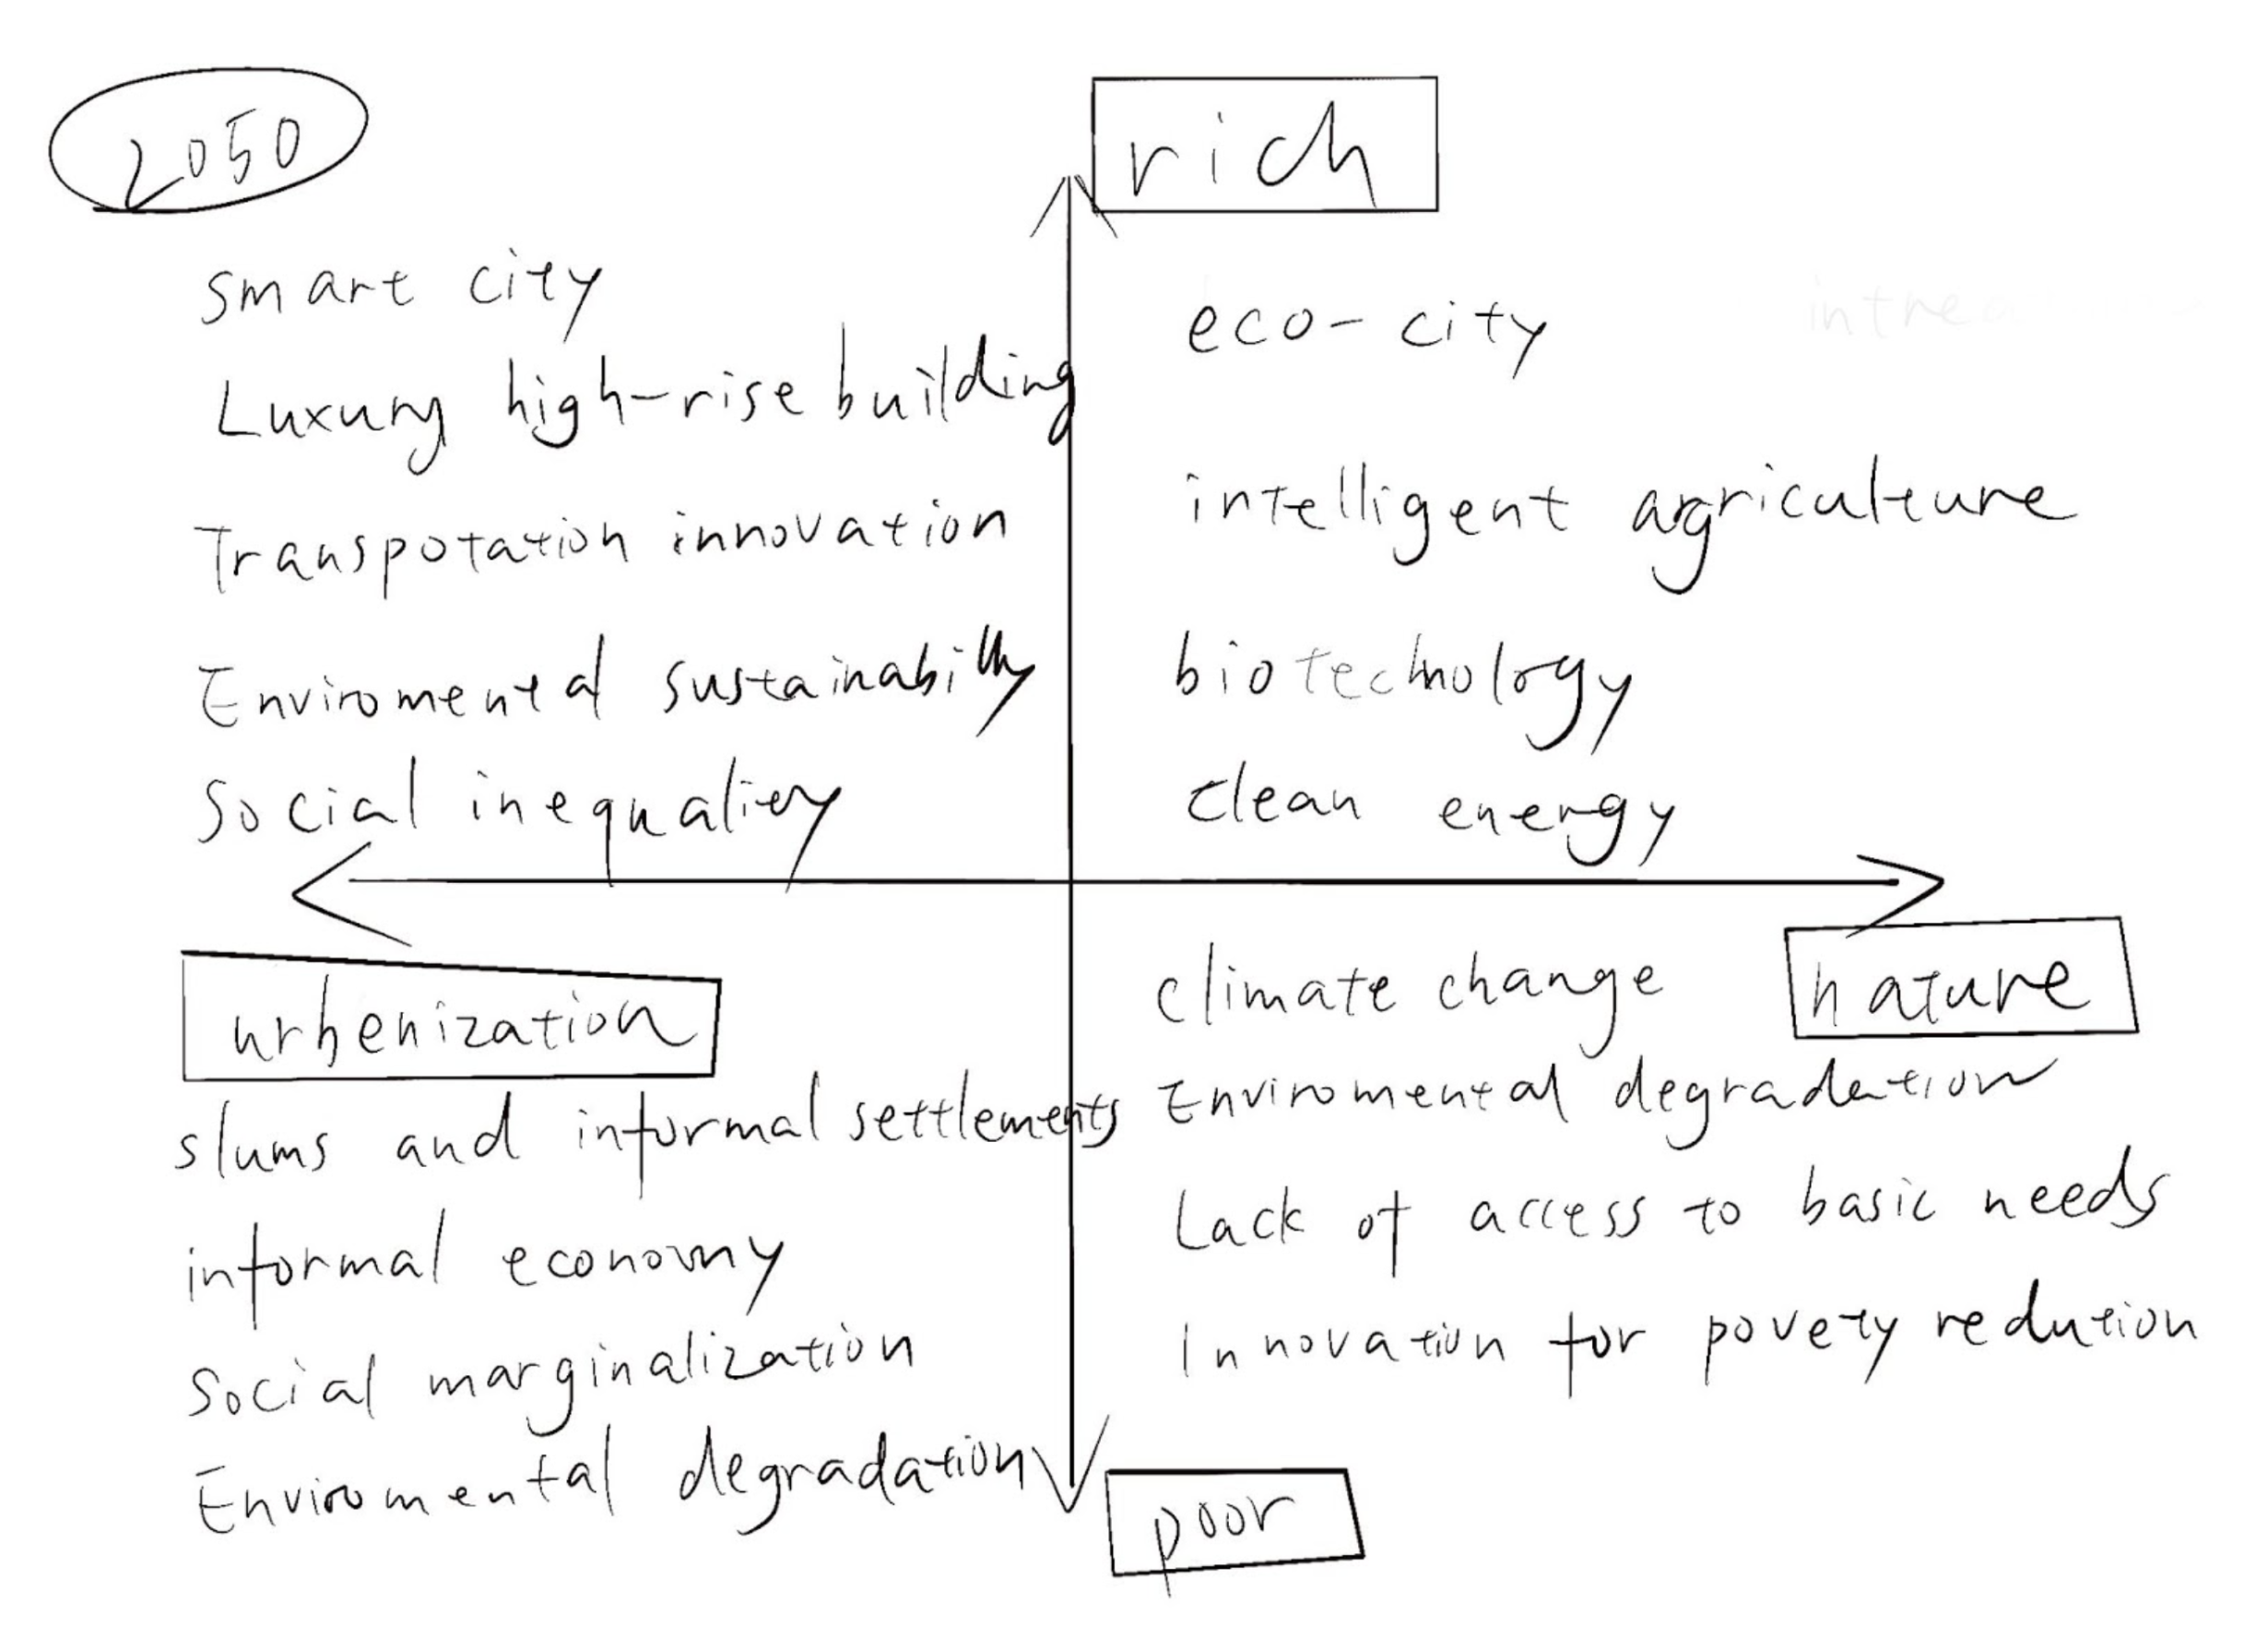 2050
rich
smart city
Luxury high-rise building
Transpotation innovation
Enviromental sustainability
Social inequality
eco-city
intelligent agriculture
biotechnology
clean energy
urbenization
nature
slums and informal settlements
informal economy
Social marginalization
Enviromental degradation
climate change
Enviromental degradation
Lack of access to basic needs
Innovation for povety redution
poor